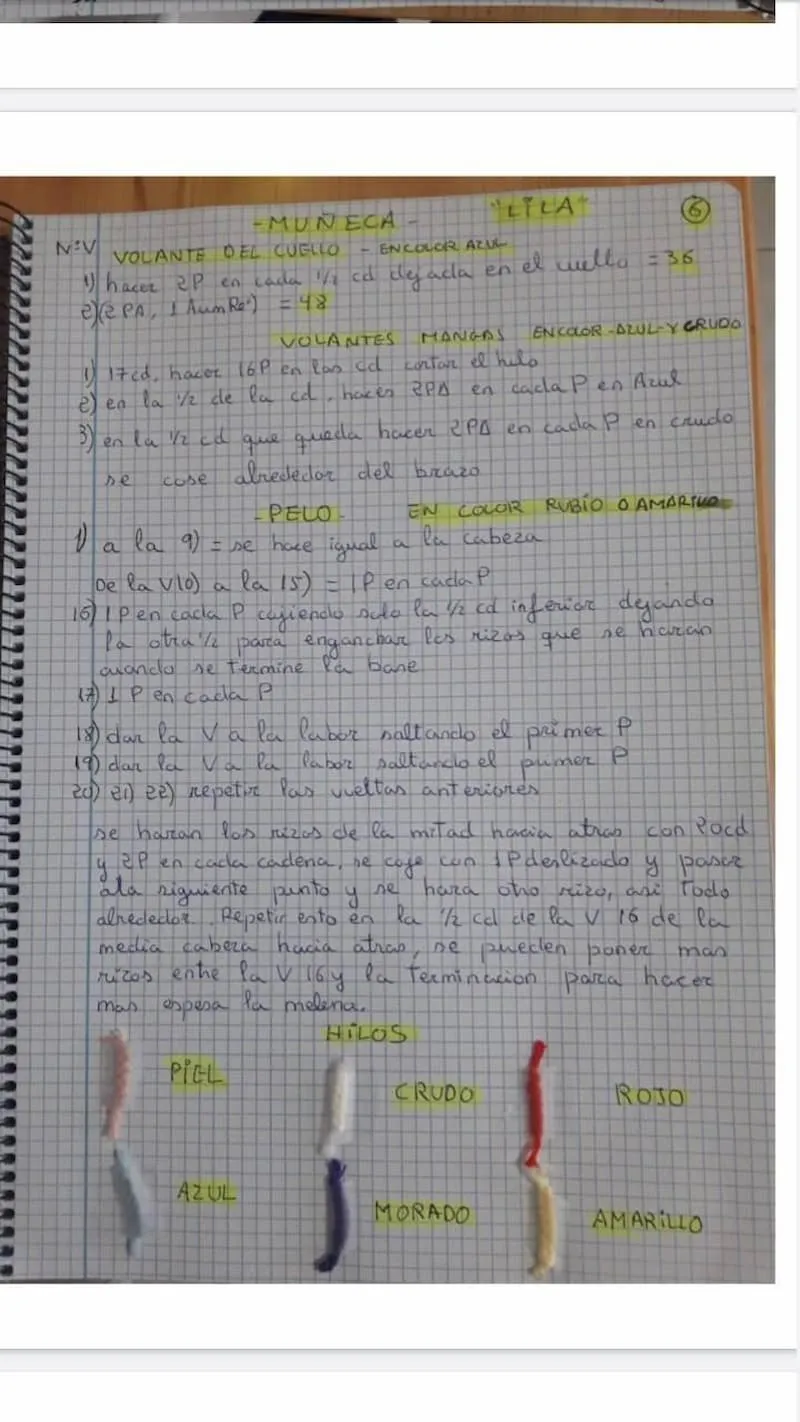 -MUÑECA- "LILA" 6
NºV VOLANTE DEL CUELLO - EN COLOR AZUL
1) hacer 2P en cada 1/2 cd dejada en el cuello = 36
2) (2 PA, 1 Aum Rel) = 48
VOLANTES MANGAS EN COLOR-AZUL-Y CRUDO
1) 17cd, hacer 16P en las cd cortar el hilo
2) en la 1/2 de la cd, hacer 2PA en cada P en Azul
3) en la 1/2 cd que queda hacer 2PA en cada P en crudo
se cose alrededor del brazo
-PELO- EN COLOR RUBÍO O AMARILLO
1) a la 9) = se hace igual a la cabeza
De la V10) a la 15) = 1P en cada P
16) 1P en cada P cojiendo solo la 1/2 cd inferior dejando
la otra 1/2 para enganchar los rizos que se haran
cuando se termine la base
17) 1 P en cada P
18) dar la V a la labor saltando el primer P
19) dar la V a la labor saltando el primer P
20) 21) 22) repetir las vueltas anteriores
se haran los rizos de la mitad hacia atras con 20cd
y 2P en cada cadena, se coje con 1P deslizado y pasar
ala siguiente punto y se hara otro rizo, asi todo
alrededor. Repetir esto en la 1/2 cd de la V 16 de la
media cabeza hacia atras, se pueden poner mas
rizos entre la V 16 y la terminacion para hacer
mas espesa la melena.
HILOS
PIEL CRUDO ROJO
AZUL MORADO AMARILLO